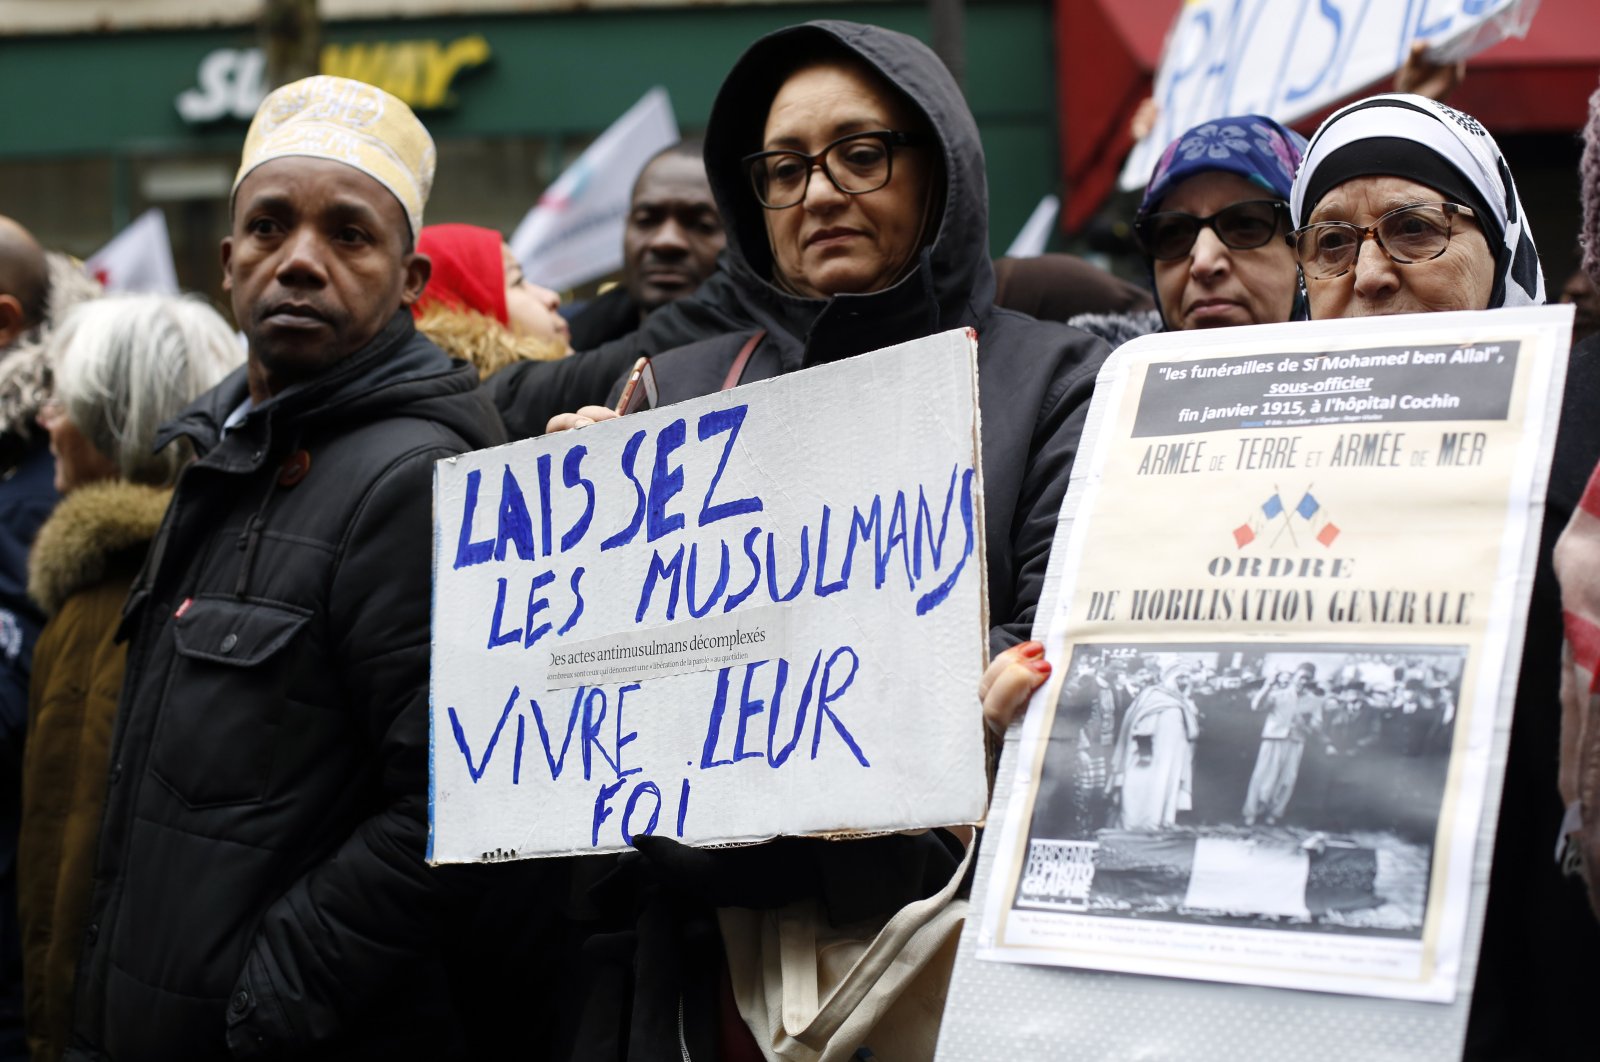 SUBWAY
LAISSEZ
LES MUSULMANS
Des actes antimusulmans décomplexés
nombreux sont ceux qui dénoncent une « libération de la parole » au quotidien
VIVRE LEUR
FOI
"les funérailles de Si Mohamed ben Allal",
sous-officier
fin janvier 1915, à l'hôpital Cochin
ARMÉE DE TERRE ET ARMÉE DE MER
ORDRE
DE MOBILISATION GÉNÉRALE
PARISIENNE
DE PHOTO
GRAPHIE